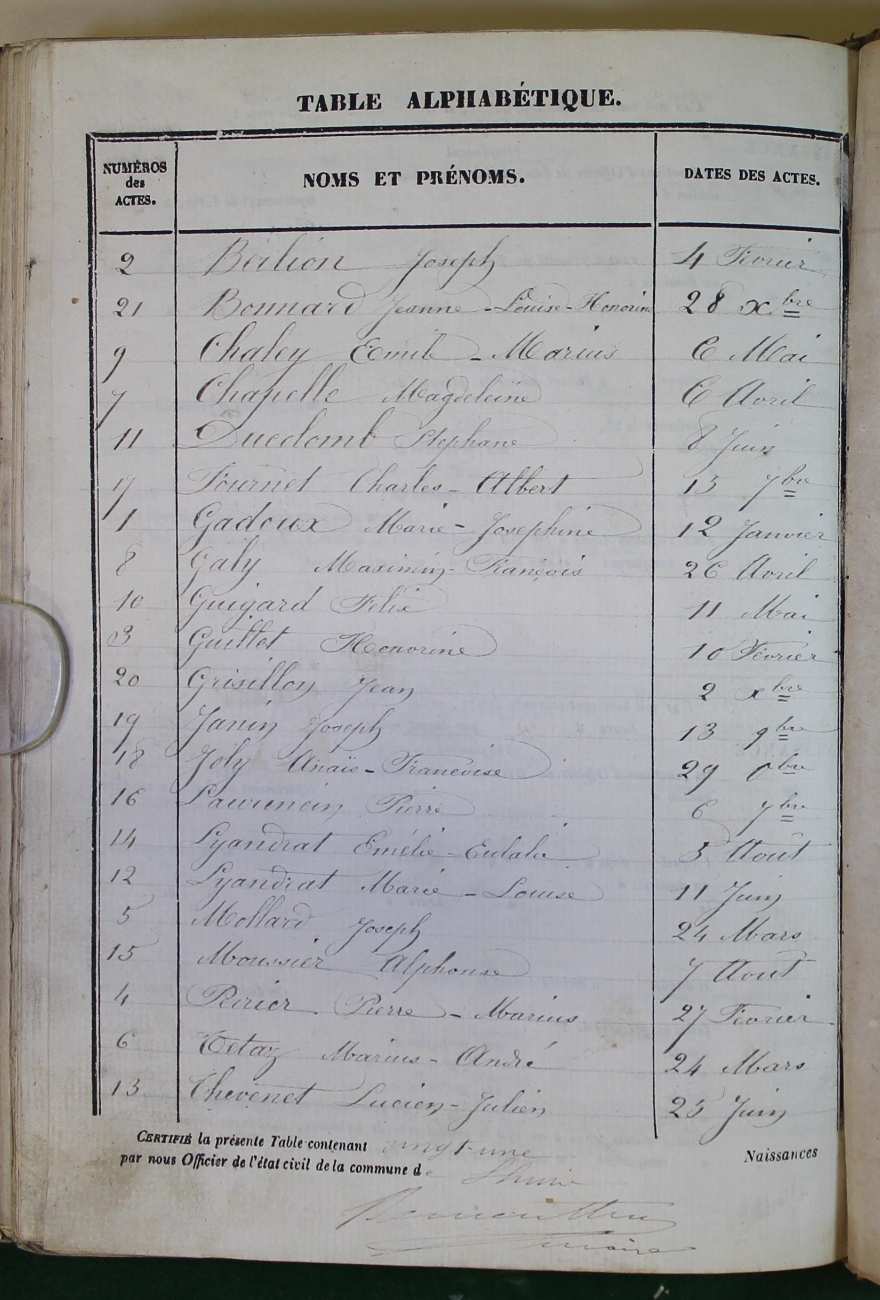 TABLE ALPHABÉTIQUE.
NUMÉROS des ACTES. NOMS ET PRÉNOMS. DATES DES ACTES.
2 Berlion Joseph 4 Février
21 Bonnard Jeanne-Louise-Honorine 28 xbre
9 Chaley Emile-Marius 6 Mai
7 Chapelle Magdeleine 6 Avril
11 Duclomb Stephane 8 Juin
17 Fournet Charles-Albert 13 7bre
1 Gadoux Marie-Josephine 12 Janvier
8 Galy Maximin-François 26 Avril
10 Guigard Félix 11 Mai
3 Guillet Honorine 10 Février
20 Grisillon Jean 2 xbre
19 Janin Joseph 13 9bre
18 Joly Anaïs-Françoise 29 8bre
16 Laurencin Pierre 6 7bre
14 Lyandrat Emélie-Eulalie 5 Août
12 Lyandrat Marie-Louise 11 Juin
5 Mollard Joseph 24 Mars
15 Moussier Alphonse 7 Août
4 Perier Pierre-Marius 27 Février
6 Tetaz Marius-André 24 Mars
13 Thevenet Lucien-Julien 25 Juin
CERTIFIÉ la présente Table contenant vingt-une Naissances
par nous Officier de l'état civil de la commune de
maire